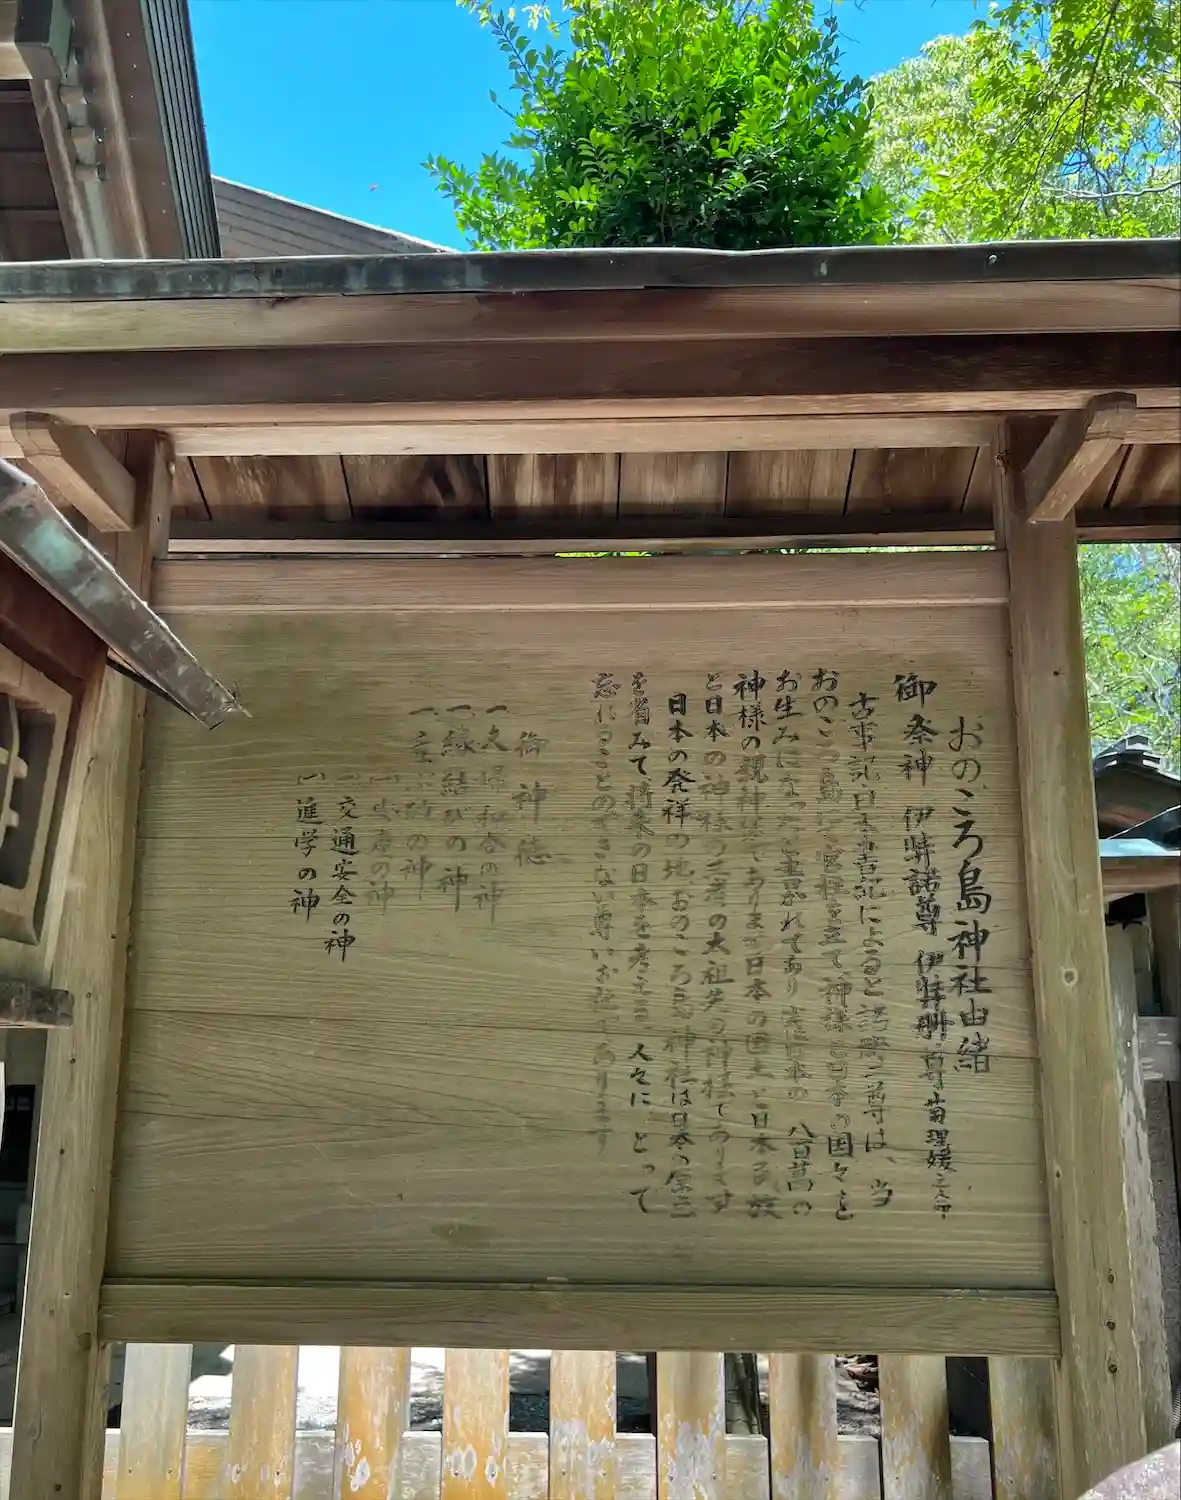 おのころ島神社由緒
御祭神 伊弉諾尊 伊弉冊尊 菊理媛之命
古事記、日本書記によると諾冊二尊は、当
おのころ島に宮柱を立て、神様と日本の国々を
お生みになったと書かれてあり 日本の 八百萬の
神様の親神様であります 日本の国土と日本民族
と日本の神様の 大祖先の神様であります
日本の発祥の地、おのころ島神社は日本の
を省みて、将来の日本を考える、人々に とって
忘れることのできない尊いお社であります
御神徳
一、夫婦和合の神
一、縁結びの神
一、の神
(一)の神
(一)交通安全の神
(一)進学の神